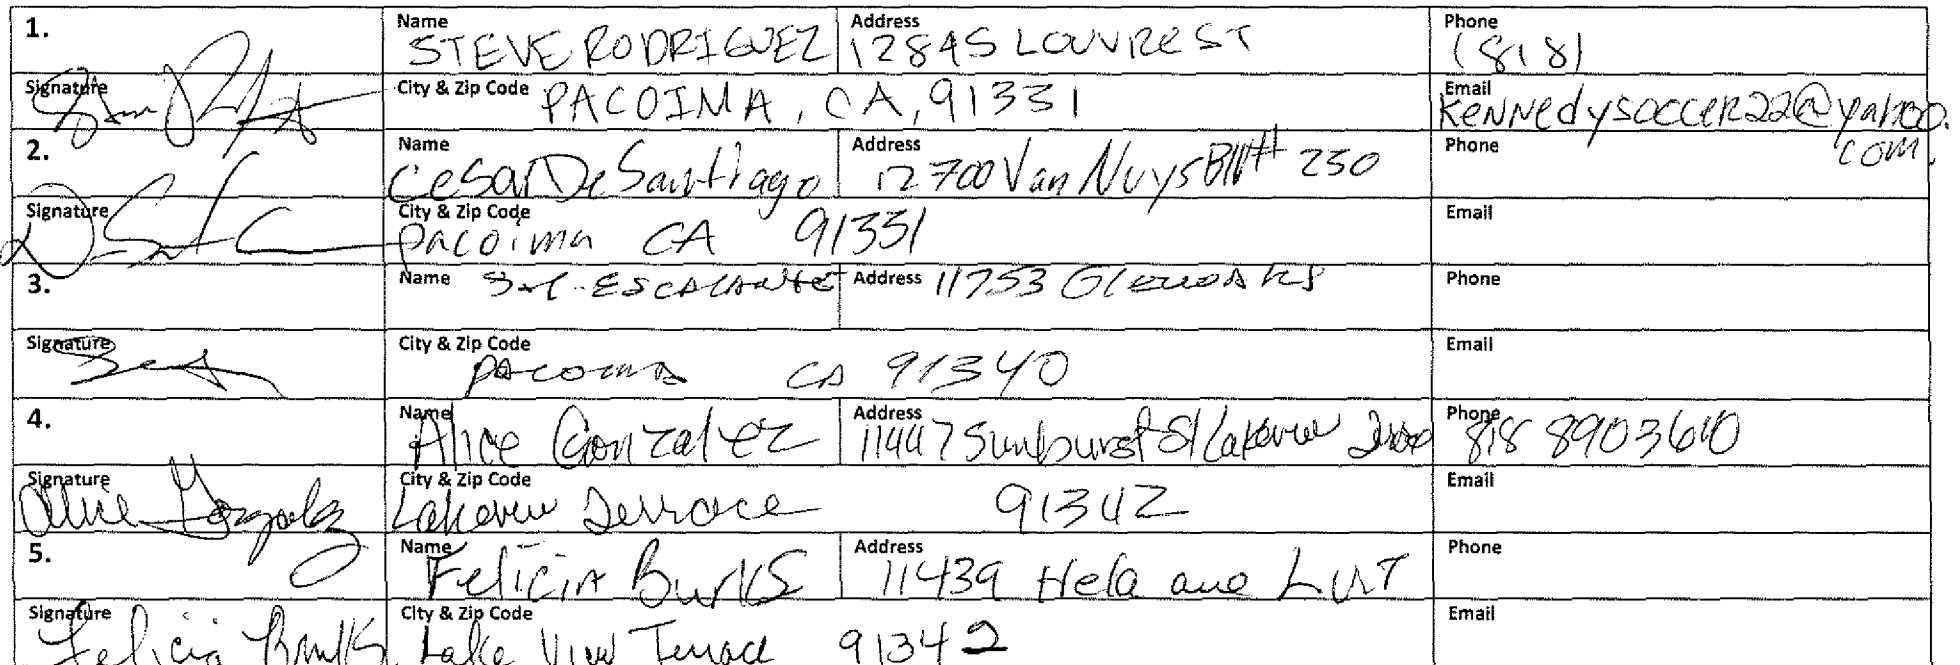 1. Name STEVE RODRIGUEZ Address 12845 LOUVRE ST Phone (818)
Signature City & Zip Code PACOIMA, CA, 91331 Email KENNEDYSOCCER22@yahoo.com.
2. Name Cesar De Santiago Address 12700 Van Nuys Blv# 250 Phone
Signature City & Zip Code Pacoima CA 91331 Email
3. Name ESCALANTE Address 11753 Glenoaks Phone
Signature City & Zip Code Pacoima CA 91340 Email
4. Name Alice Gonzalez Address 11447 Sunburst St Lakeview Phone 818 8903640
Signature Alice Gonzalez City & Zip Code Lakeview Terrace 91342 Email
5. Name Felicia Burks Address 11439 Hela ave LVT Phone
Signature Felicia Burks City & Zip Code Lake View Terrace 91342 Email